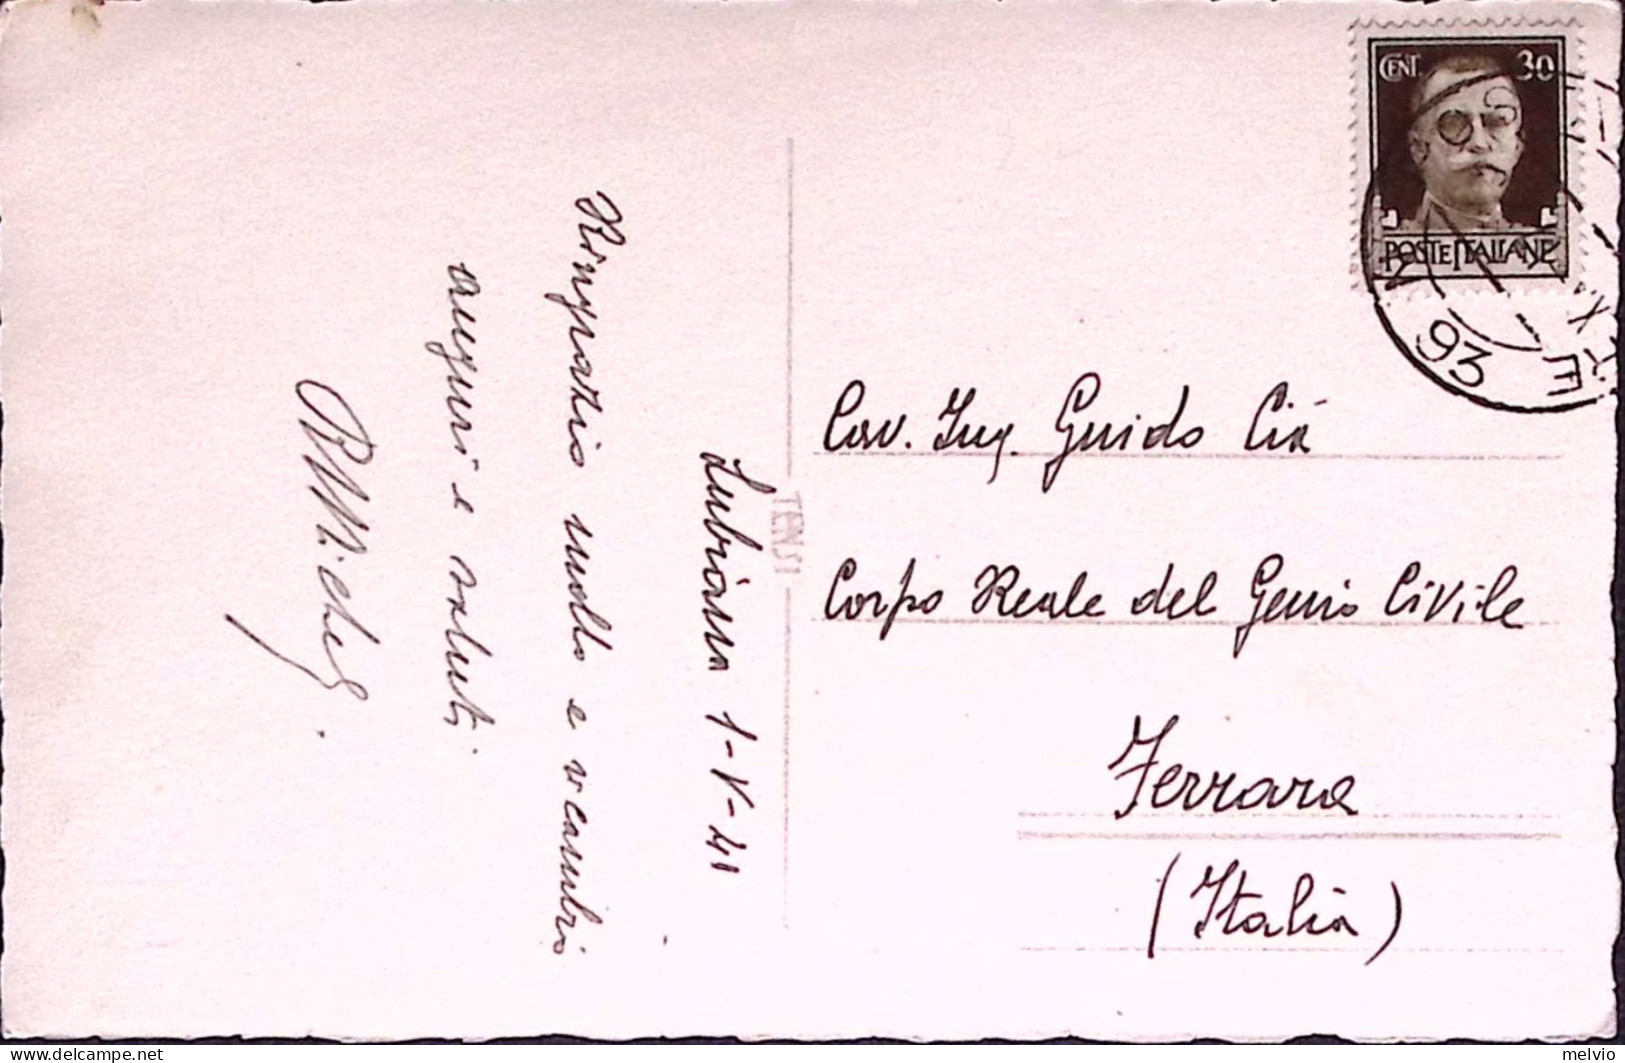 Lubiana 1-V-41
Ringrazio molto e ricambio
auguri e saluti.
TENSI
CENT. 30
POSTE ITALIANE
93
Cav. Ing. Guido Cià
Corpo Reale del Genio Civile
Ferrara
(Italia)
melvio
www.delcampe.net